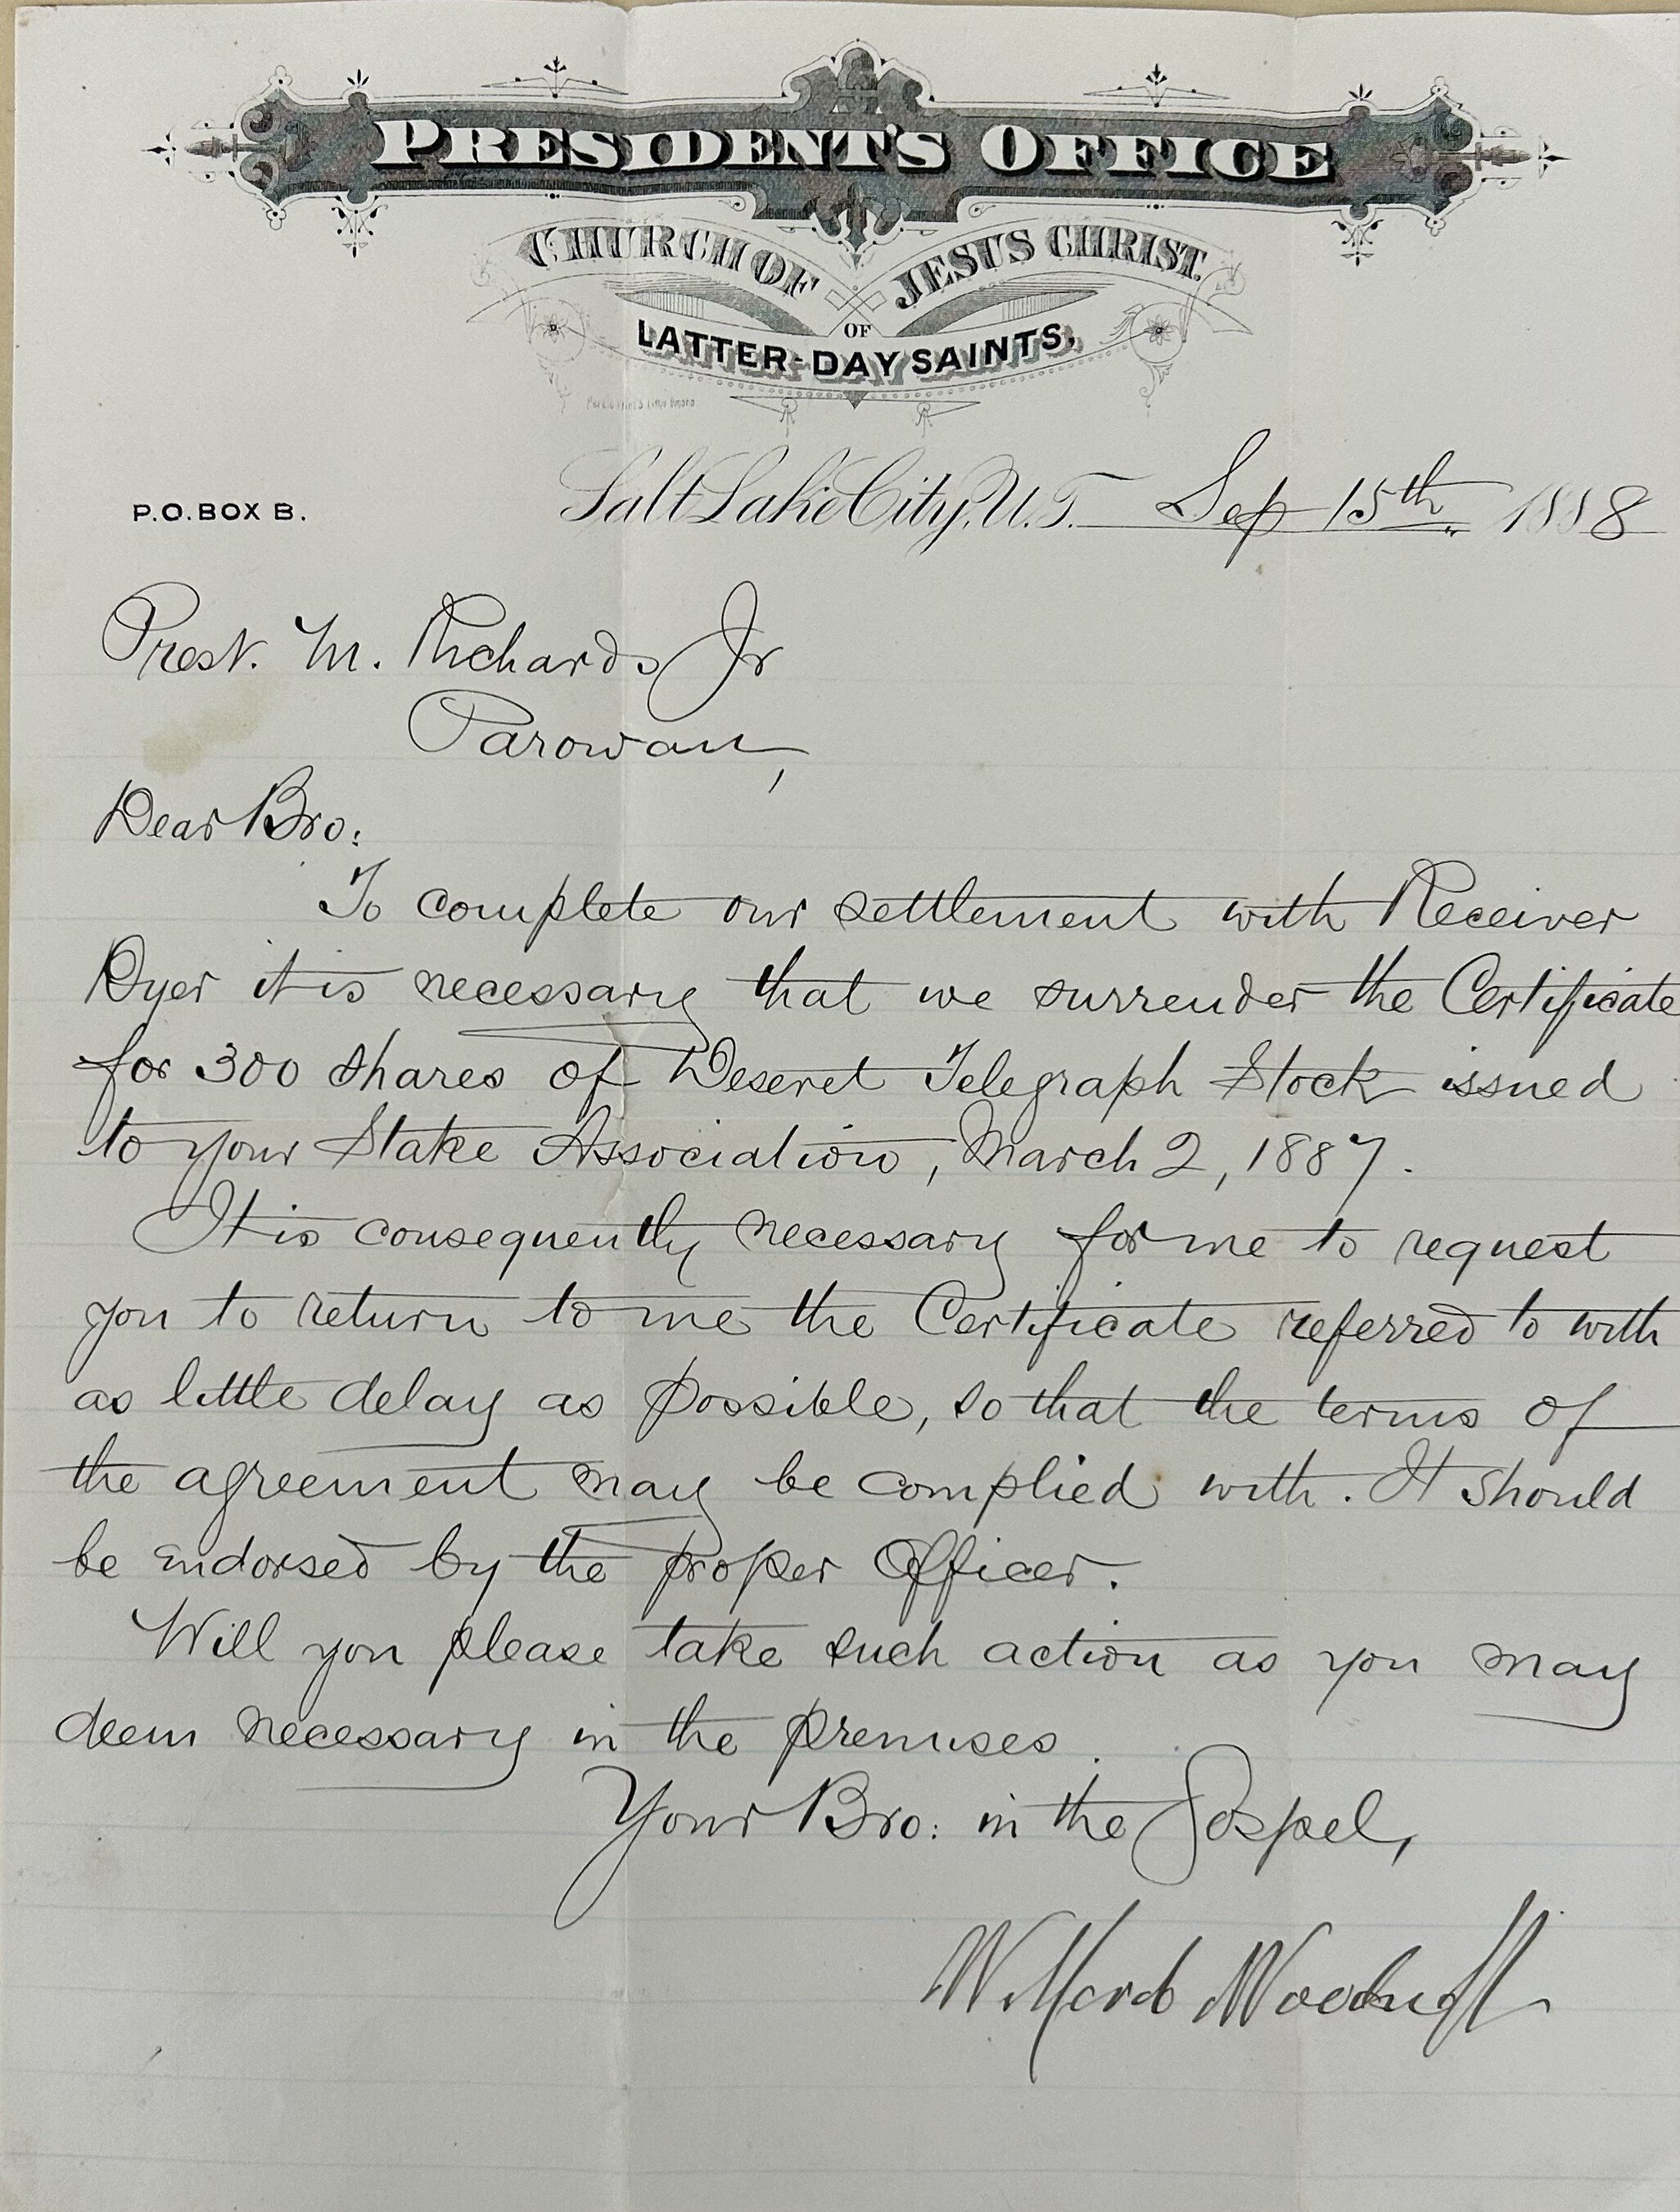 PRESIDENT'S OFFICE
CHURCH OF JESUS CHRIST
OF
LATTER-DAY SAINTS.
P.O. BOX B.
Salt Lake City, U.T. Sep 15th 1888
Prest. M. Richards Jr
Parowan,
Dear Bro:
To complete our settlement with Receiver
Dyer it is necessary that we surrender the Certificate
for 300 shares of Deseret Telegraph Stock issued
to your Stake Association, March 2, 1887.
It is consequently necessary for me to request
you to return to me the Certificate referred to with
as little delay as possible, so that the terms of
the agreement may be complied with. It should
be endorsed by the proper Officer.
Will you please take such action as you may
deem necessary in the premises.
Your Bro: in the Gospel,
Wilford Woodruff